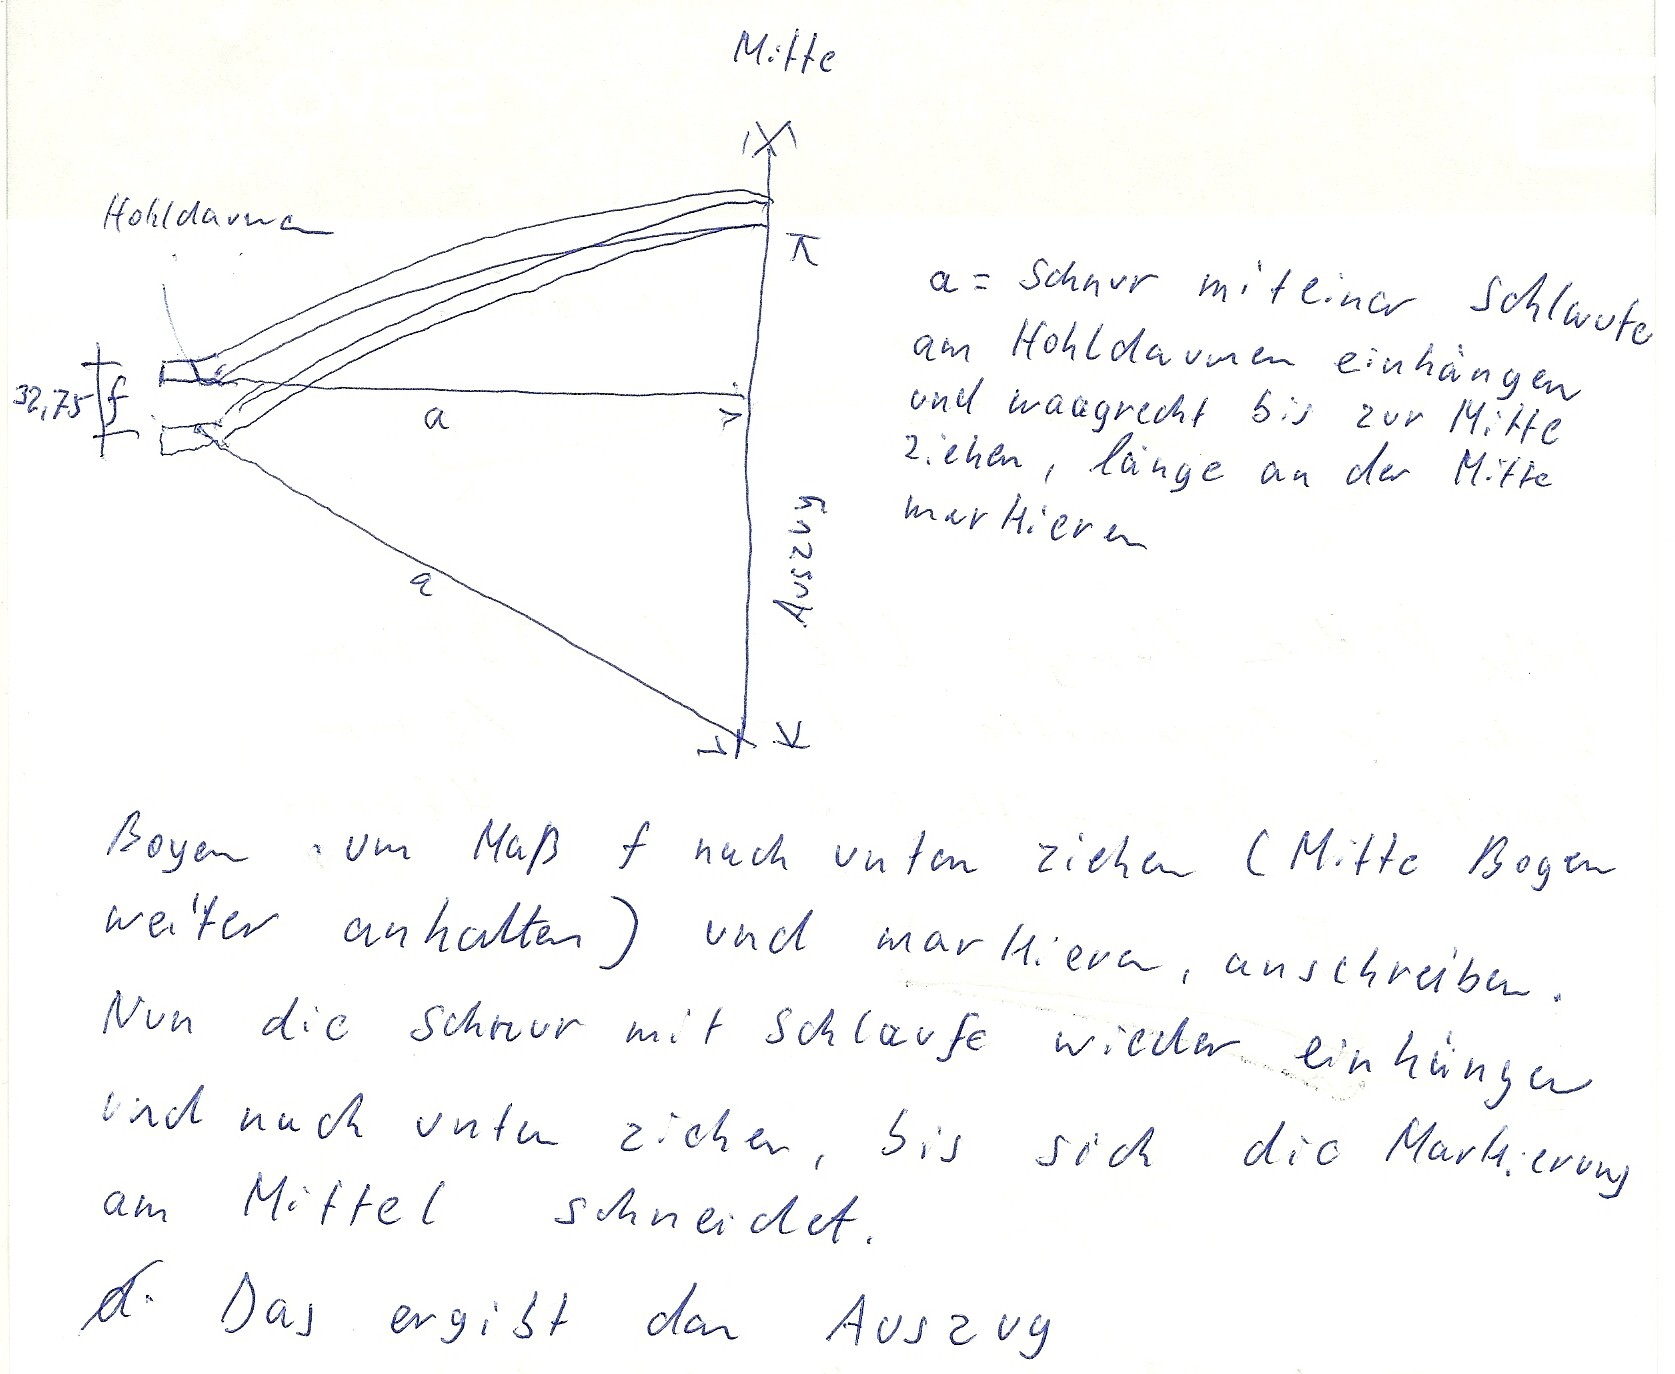 Mitte
Hohldaumen
a = Schnur mit einer Schlaufe
am Hohldaumen einhängen
und waagrecht bis zur Mitte
ziehen, länge an der Mitte
markieren
32,75
f
a
Auszug
a
Bogen um Maß f nach unten ziehen (Mitte Bogen
weiter anhalten) und markieren, anschreiben.
Nun die Schnur mit Schlaufe wieder einhängen
und nach unten ziehen, bis sich die Markierung
am Mittel schneidet.
d. Das ergibt den Auszug